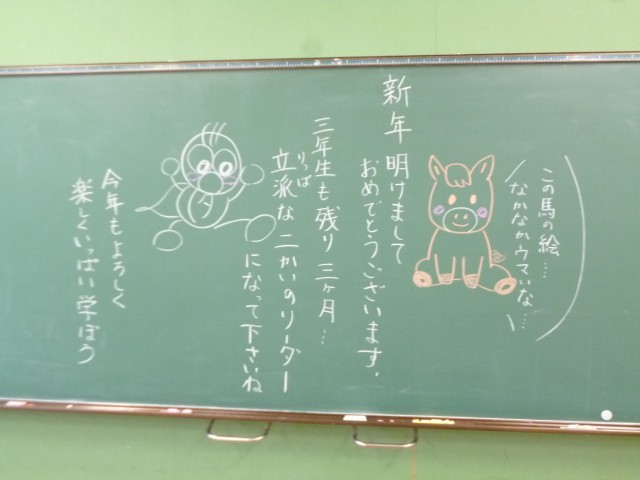 この馬の絵…
なかなかウマいな…
新年 明けまして
おめでとうございます。
三年生も残り 三ヶ月…
立派な 二かいのリーダー
りっぱ
になって下さいね
タ
今年もよろしく
楽しくいっぱい学ぼう